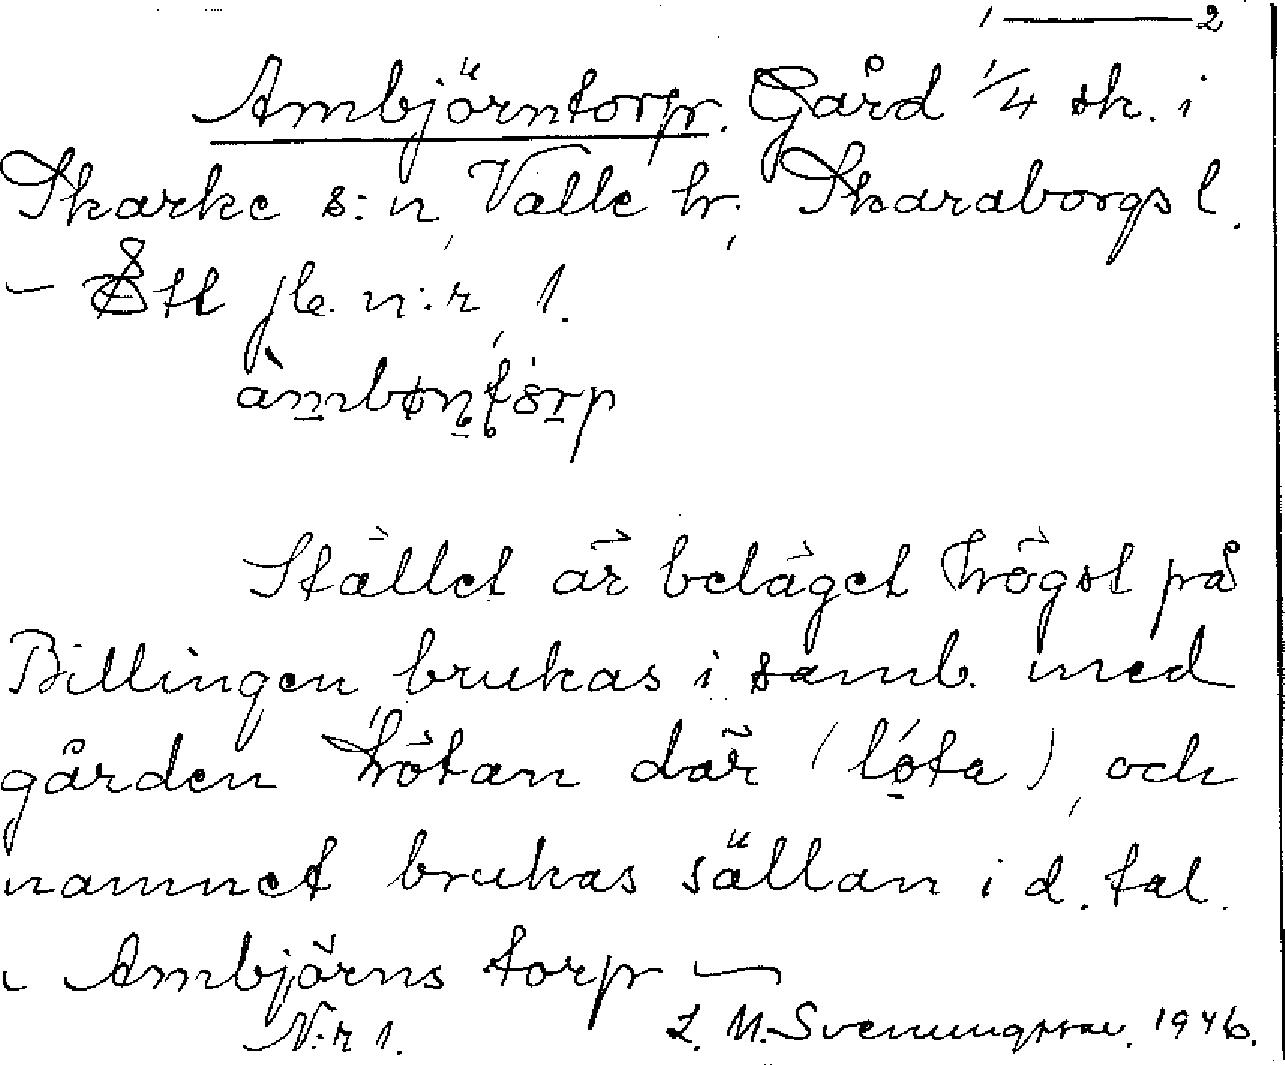 1 — 2
Ambjörntorp. Gård 1/4 sk. i
Skarke s:n, Valle hr, Skaraborgs l.
– Ått jb. n:r, 1.
àmbøntorp
Stället är beläget högst på
Billingen, brukas i samb. med
gården Hötan där (lóta), och
namnet brukas sällan i d. tal.
Ambjörns torp –
N:r 1. L. M. Svenungsson. 1946.